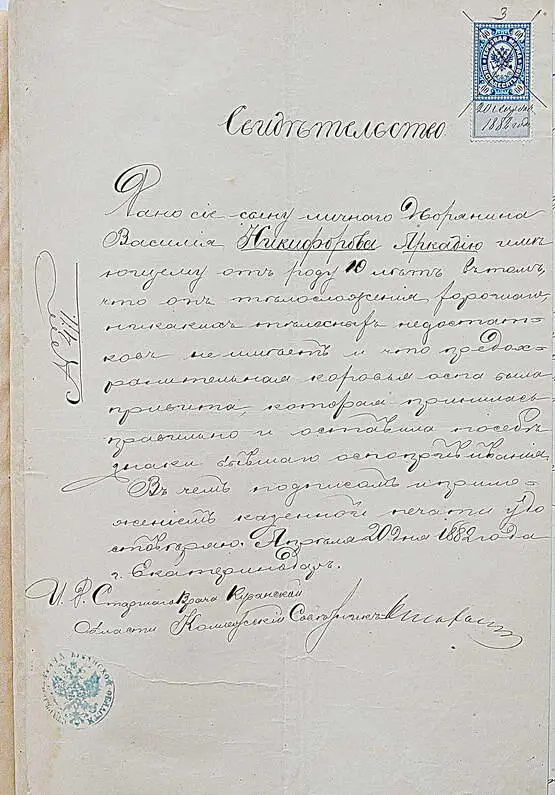 3
20 Апреля
1882 года
Свидѣтельство
Дано сіе сыну личнаго Дворянина
Василія Никифорова Аркадію имѣ
ющему отъ роду 10 лѣтъ въ томъ,
что онъ тѣлосложенія хорошаго,
никакихъ тѣлесныхъ недостат-
ковъ не имѣетъ и что предох-
ранительная коровья оспа была
привита, которая принялась
правильно и оставила послѣ
знаки бывшаго оспопрививанія
Въ чемъ подписомъ и прило-
женіемъ казенной печати удо
стовѣряю. Апрѣля 20 дня 1882 года
г. Екатеринодаръ.
И. Д. Старшаго Врача Кубанской
области Коллежскій Совѣтникъ
№ 411.